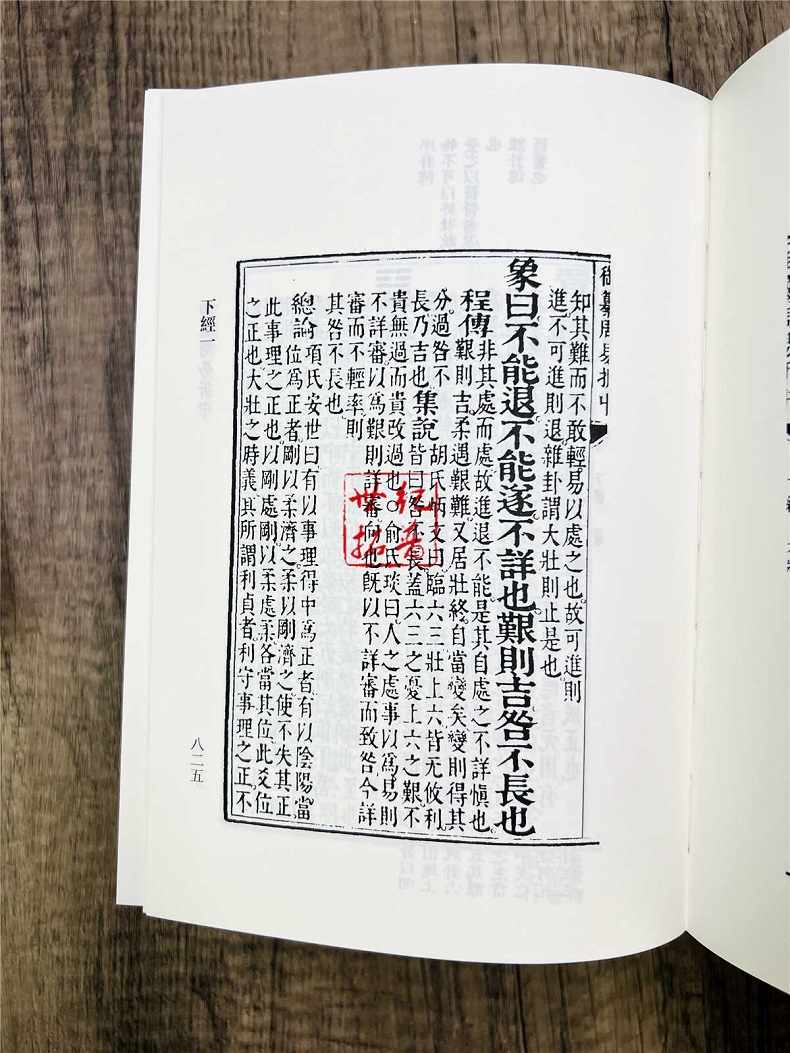 御纂周易折中
知其難而不敢輕易以處之也故可進則
進不可進則退雜卦謂大壯則止是也
象曰不能退不能遂不詳也艱則吉咎不長也
程傳 非其處而處故進退不能是其自處之不詳慎也
艱則吉柔遇艱難又居壯終自當變矣變則得其
分過咎不
長乃吉也 集說 胡氏炳文曰臨六三壯上六皆无攸利
皆曰咎不長蓋六三之憂上六之艱不
貴無過而貴改過也○俞氏琰曰人之處事以為易則
不詳審以為艱則詳審向也既以不詳審而致咎今詳
審而不輕率則
其咎不長也
總論 項氏安世曰有以事理得中為正者有以陰陽當
位為正者剛以柔濟之柔以剛濟之使不失其正
此事理之正也以剛處剛以柔處柔各當其位此爻位
之正也大壯之時義其所謂利貞者利守事理之正不
下經一
八二五